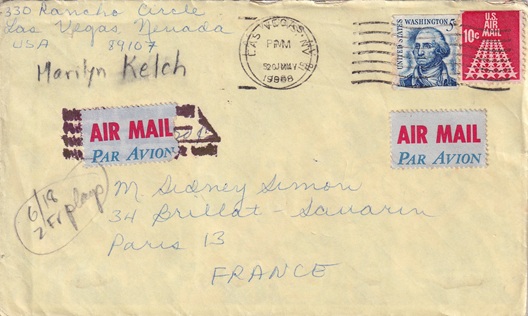 330 Rancho Circle
Las Vegas, Nevada
USA 89107
Marilyn Kelch
LAS VEGAS, NV
PM
20 MAY
1968
UNITED STATES
WASHINGTON 5c
U.S. AIR MAIL
10c
AIR MAIL
PAR AVION
AIR MAIL
PAR AVION
6/18
2 Fr
M Sidney Simon
34 Brillat-Savarin
Paris 13
FRANCE